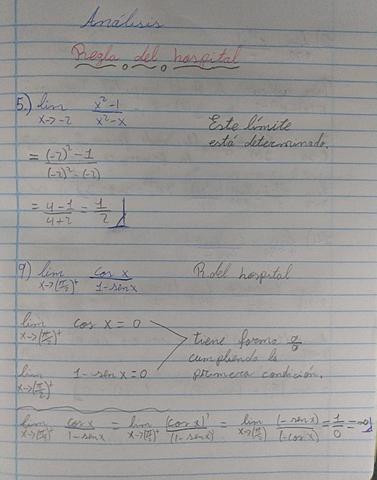 Análisis
Regla del hospital
5.) lim x→-2 x²-1 / x²-x
Este límite
está determinado.
= (-2)²-1 / (-2)²-(-2)
= 4-1 / 4+2 = 1/2
9) lim x→(π/2)⁺ cos x / 1-sen x R del hospital
lim x→(π/2)⁺ cos x = 0
tiene forma 0/0
cumpliendo la
lim x→(π/2)⁺ 1-sen x = 0 primera condición.
lim x→(π/2)⁺ cos x / 1-sen x = lim x→(π/2)⁺ (cos x)' / (1-sen x)' = lim x→(π/2) (-sen x) / (-cos x) = 1/0 = -∞